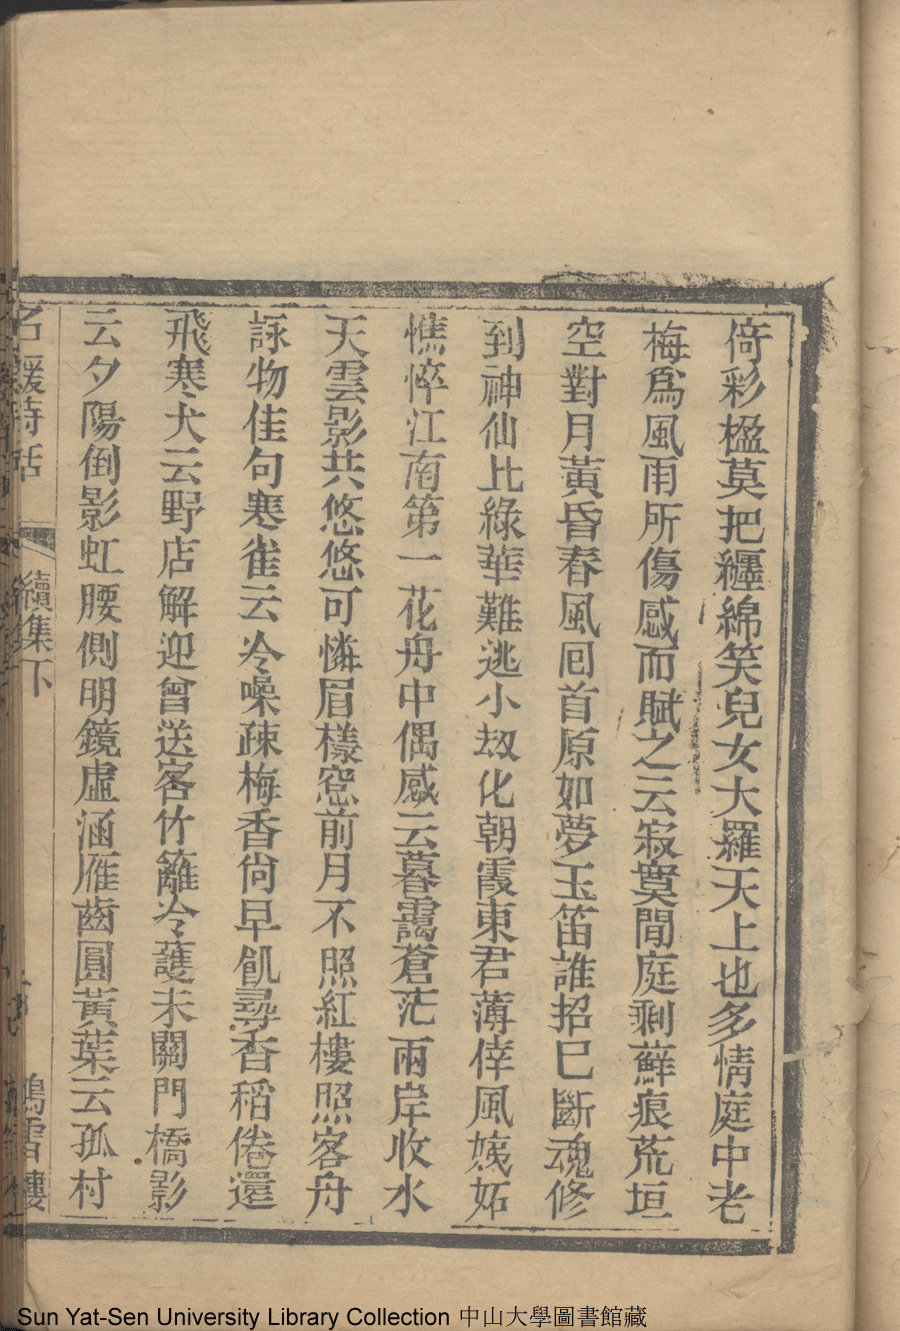 倚彩楹莫把纏綿笑兒女大羅天上也多情庭中老
梅爲風雨所傷感而賦之云寂寞閒庭剩蘚痕荒垣
空對月黃昏春風囘首原如夢玉笛誰招已斷魂修
到神仙比綠華難逃小刼化朝霞東君薄倖風姨妬
憔悴江南第一花舟中偶感云暮靄蒼茫兩岸收水
天雲影共悠悠可憐眉樣窓前月不照紅樓照客舟
詠物佳句寒雀云冷噪疎梅香尙早飢尋香稻倦還
飛寒犬云野店解迎曾送客竹籬冷護未關門橋影
云夕陽倒影虹腰側明鏡虛涵雁齒圓黃葉云孤村
名媛詩話 續集下 鴻雪樓
Sun Yat-Sen University Library Collection 中山大學圖書館藏